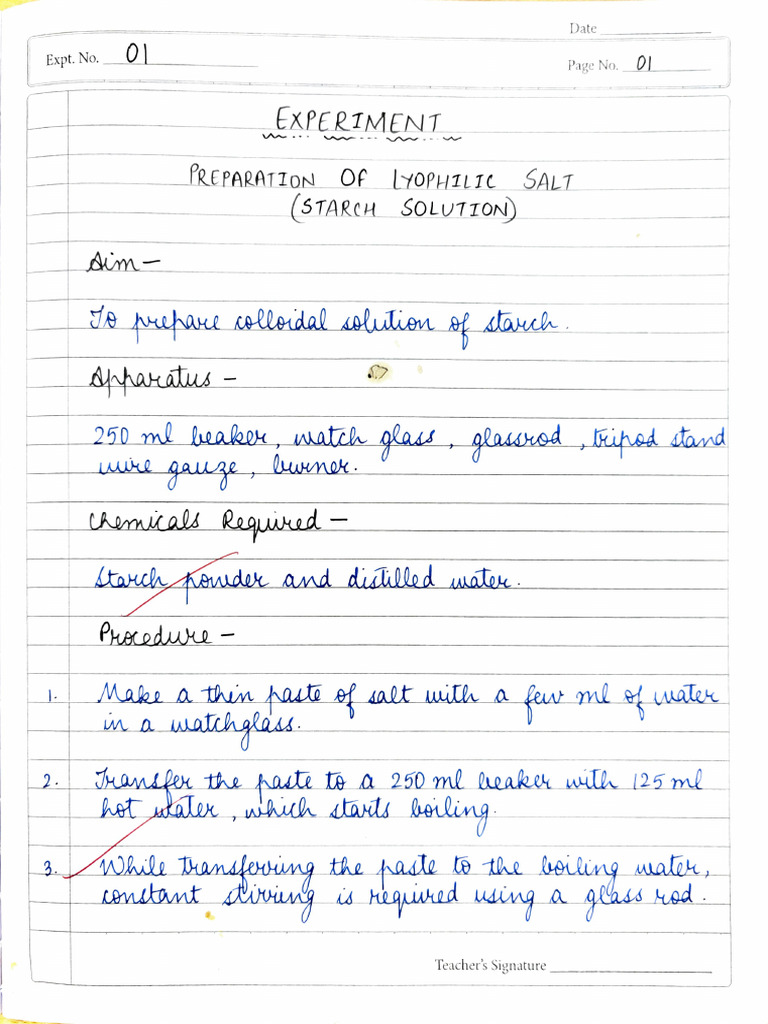 Date
Expt. No. 01
Page No. 01
EXPERIMENT
PREPARATION OF LYOPHILIC SALT
(STARCH SOLUTION)
Aim -
To prepare colloidal solution of starch.
Apparatus -
250 ml beaker, watch glass, glassrod, tripod stand
wire gauze, burner.
Chemicals Required -
Starch powder and distilled water.
Procedure -
1. Make a thin paste of salt with a few ml of water
in a watchglass.
2. Transfer the paste to a 250 ml beaker with 125 ml
hot water, which starts boiling.
3. While transferring the paste to the boiling water,
constant stirring is required using a glass rod.
Teacher's Signature